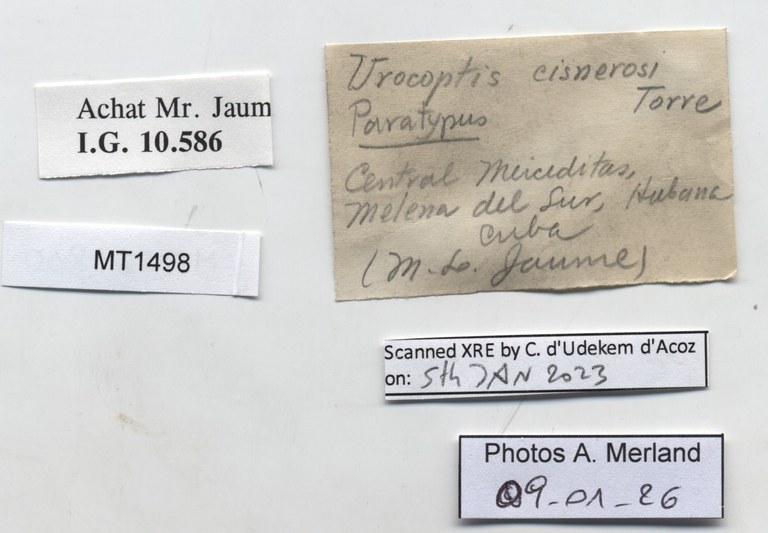 Achat Mr. Jaum
I.G. 10.586
MT1498
Urocoptis cisnerosi
Torre
Paratypus
Central Merceditas,
Melena del Sur, Habana
Cuba
(M. L. Jaume)
Scanned XRE by C. d'Udekem d'Acoz
on: 5th JAN 2023
Photos A. Merland
09-01-26